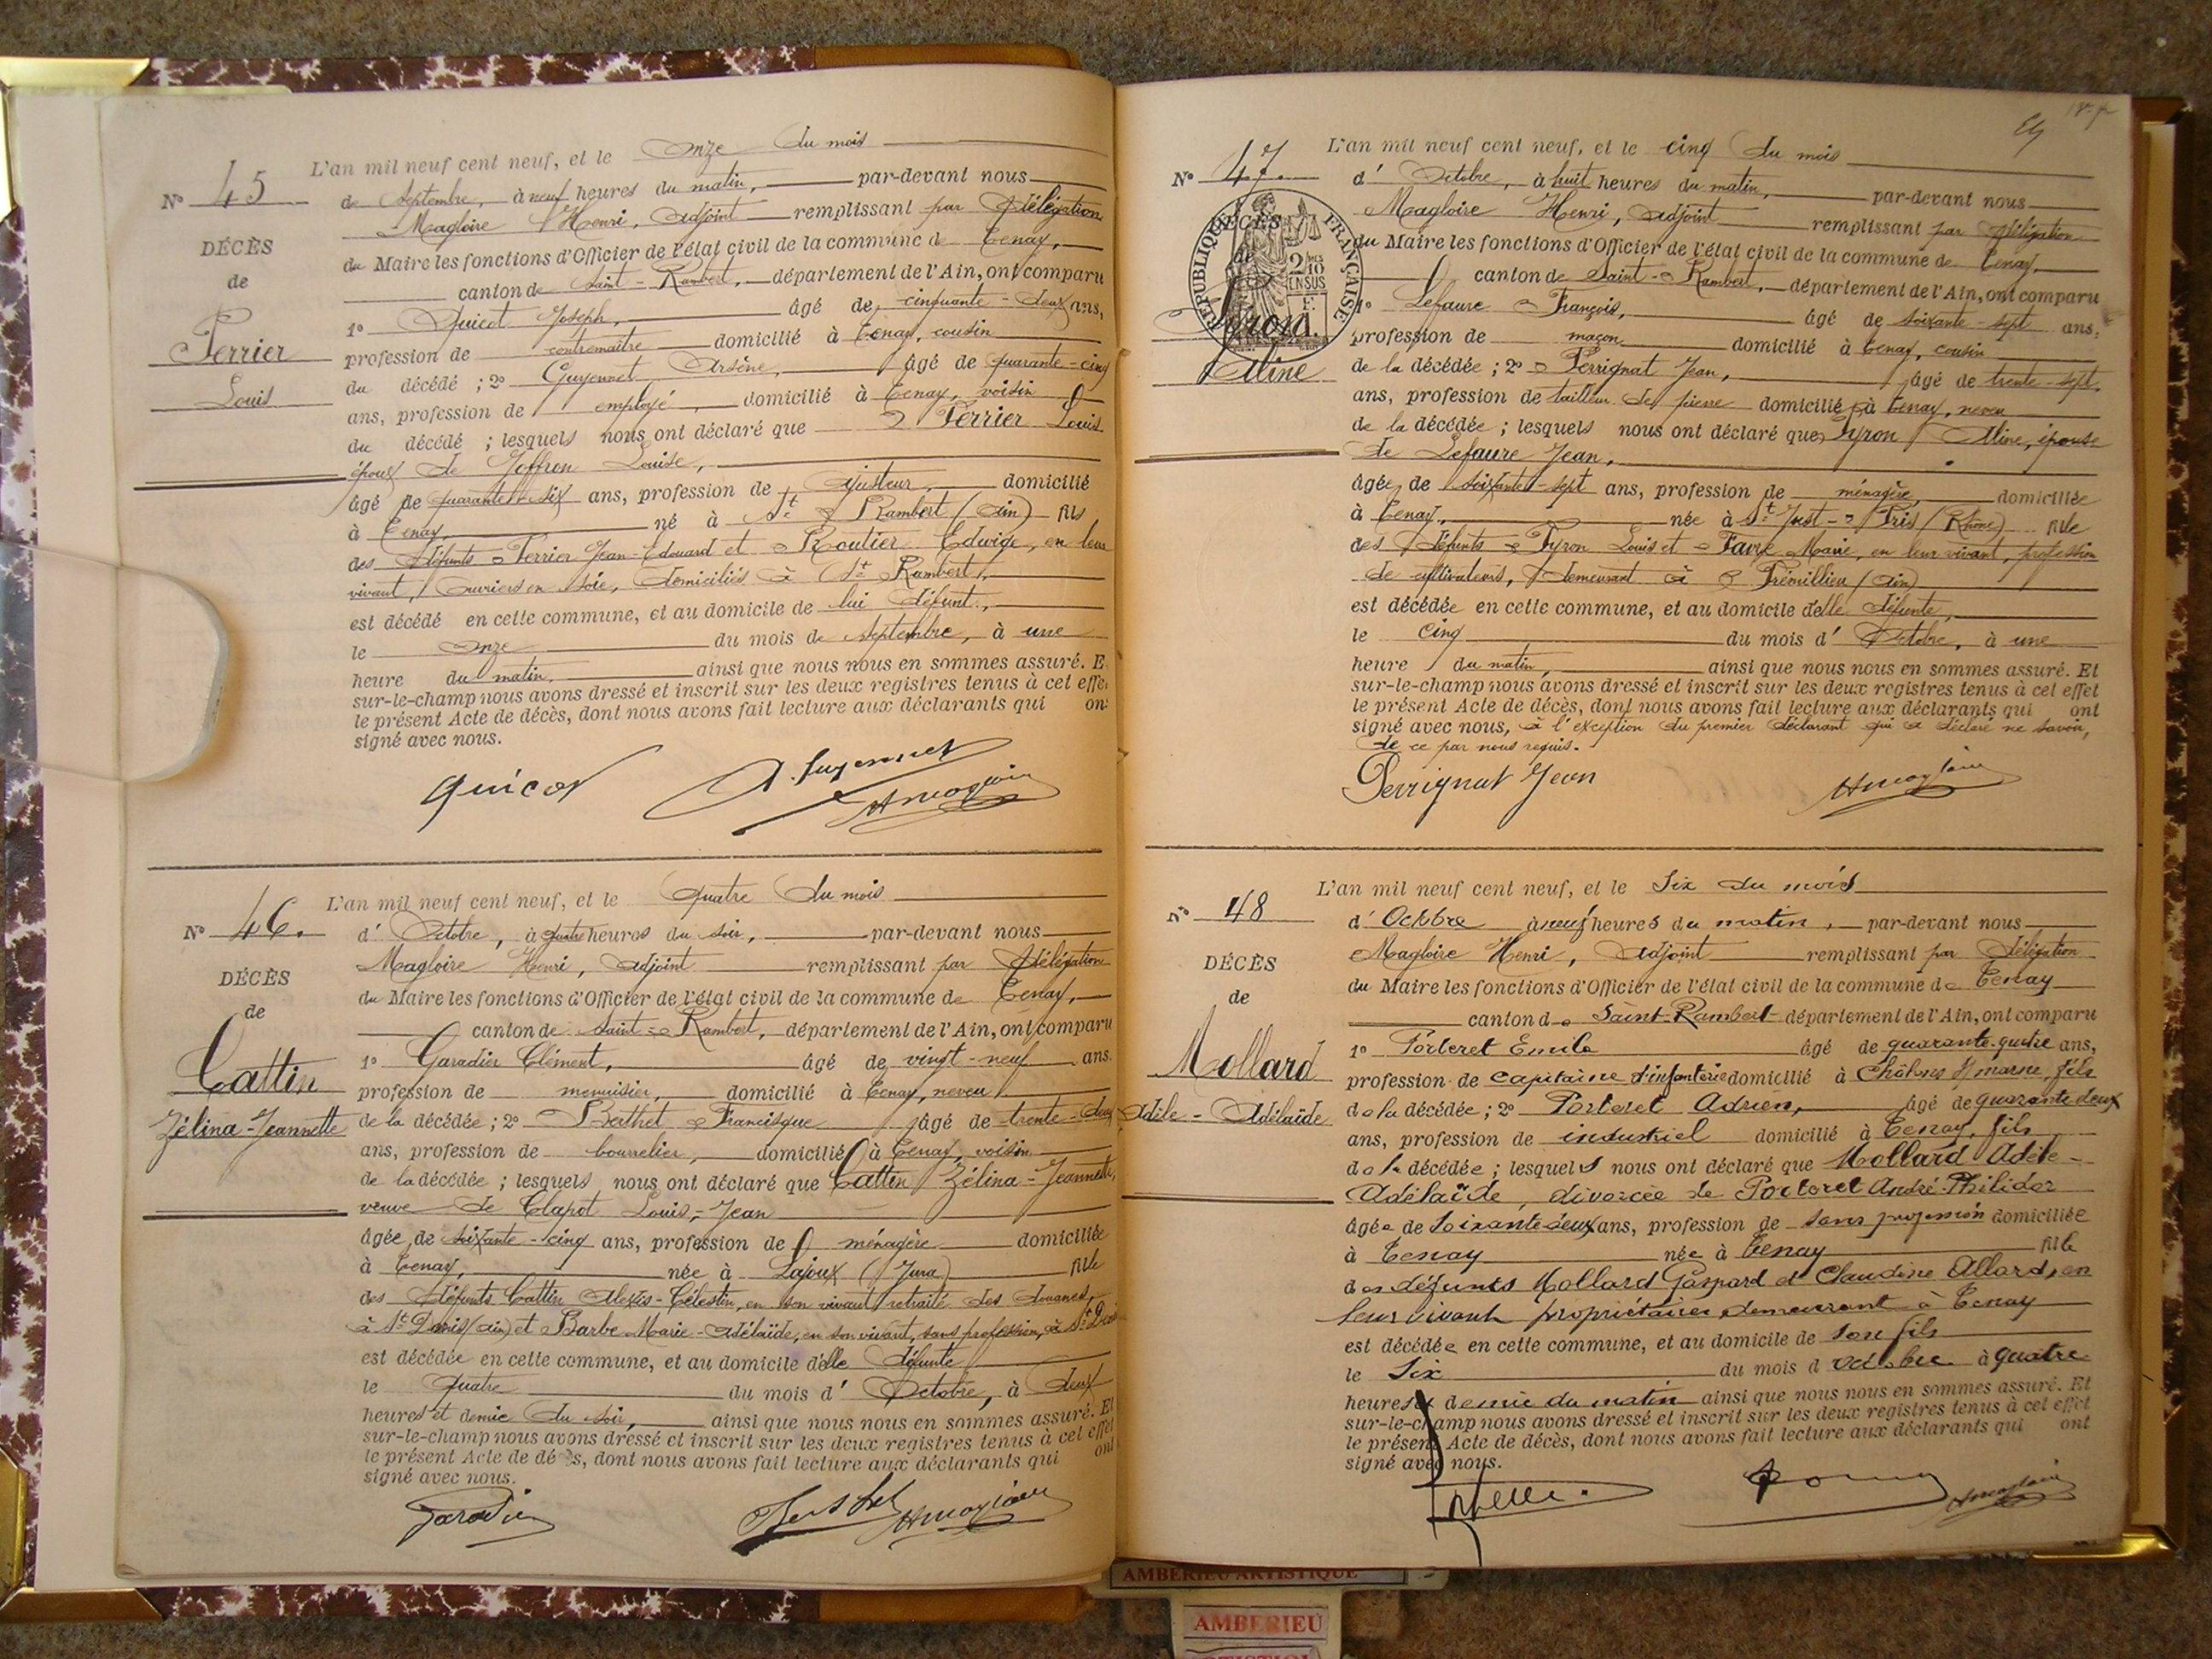 N° 45
DÉCÈS
de
Perrier
Louis
L'an mil neuf cent neuf, et le onze du mois
de Septembre, à neuf heures du matin, par-devant nous
Magloire Henri, adjoint remplissant par délégation
du Maire les fonctions d'Officier de l'état civil de la commune de Tenay,
canton de Saint-Rambert, département de l'Ain, ont comparu
1° Quicot Joseph, âgé de cinquante-deux ans,
profession de contremaître domicilié à Tenay, cousin
du décédé ; 2° Guyennet Arsène, âgé de quarante-cinq
ans, profession de employé, domicilié à Tenay, voisin
du décédé ; lesquels nous ont déclaré que Perrier Louis
époux de Joffron Louise,
âgé de quarante-six ans, profession de ajusteur, domicilié
à Tenay, né à St Rambert (Ain) fils
des défunts Perrier Jean-Edouard et Routier Edwige, en leur
vivant, ouvriers en soie, domiciliés à St Rambert,
est décédé en cette commune, et au domicile de lui défunt,
le onze du mois de Septembre, à une
heure du matin, ainsi que nous nous en sommes assuré. E
sur-le-champ nous avons dressé et inscrit sur les deux registres tenus à cet effe
le présent Acte de décès, dont nous avons fait lecture aux déclarants qui ont
signé avec nous.
Quicot A. Guyennet HMagloire
N° 46.
DÉCÈS
de
Cattin
Zélina-Jeannette
L'an mil neuf cent neuf, et le quatre du mois
d'Octobre, à quatre heures du soir, par-devant nous
Magloire Henri, adjoint remplissant par délégation
du Maire les fonctions d'Officier de l'état civil de la commune de Tenay,
canton de Saint-Rambert, département de l'Ain, ont comparu
1° Garadier Clément, âgé de vingt-neuf ans.
profession de menuisier, domicilié à Tenay, neveu
de la décédée ; 2° Berthet Francisque âgé de trente-deux
ans, profession de bourrelier, domicilié à Tenay, voisin
de la décédée ; lesquels nous ont déclaré que Cattin Zélina-Jeannette,
veuve de Clapot Louis-Jean
âgée de soixante-cinq ans, profession de ménagère domiciliée
à Tenay, née à Lajoux (Jura) fille
des défunts Cattin Alexis-Célestin, en son vivant retraité des douanes,
à St Denis (Ain) et Barbe Marie-Adélaïde, en son vivant, sans profession, à St Denis
est décédée en cette commune, et au domicile d'elle défunte
le quatre du mois d'Octobre, à deux
heures et demie du soir, ainsi que nous nous en sommes assuré. Et
sur-le-champ nous avons dressé et inscrit sur les deux registres tenus à cet effet
le présent Acte de décès, dont nous avons fait lecture aux déclarants qui ont
signé avec nous.
Garadier Berthet HMagloire
N° 47.
RÉPUBLIQUE FRANÇAISE
DÉCÈS
de
2/10 EN SUS
Pyron.
Aline
L'an mil neuf cent neuf, et le cinq du mois
d'Octobre, à huit heures du matin, par-devant nous
Magloire Henri, adjoint remplissant par délégation
du Maire les fonctions d'Officier de l'état civil de la commune de Tenay,
canton de Saint-Rambert, département de l'Ain, ont comparu
1° Lefaure François, âgé de soixante-sept ans,
profession de maçon domicilié à Tenay, cousin
de la décédée ; 2° Perrignat Jean, âgé de trente-sept
ans, profession de tailleur de pierre domicilié à Tenay, neveu
de la décédée ; lesquels nous ont déclaré que Pyron Aline, épouse
de Lefaure Jean,
âgée de soixante-sept ans, profession de ménagère, domiciliée
à Tenay, née à St Just- (Rhône) fille
des défunts Pyron Louis et Favre Marie, en leur vivant, profession
de cultivateurs, demeurant à Prémillieu (Ain)
est décédée en cette commune, et au domicile d'elle défunte,
le cinq du mois d'Octobre, à une
heure du matin, ainsi que nous nous en sommes assuré. Et
sur-le-champ nous avons dressé et inscrit sur les deux registres tenus à cet effet
le présent Acte de décès, dont nous avons fait lecture aux déclarants qui ont
signé avec nous, à l'exception du premier déclarant qui a déclaré ne savoir,
de ce par nous requis.
Perrignat Jean HMagloire
N° 48
DÉCÈS
de
Mollard
Adèle-Adélaïde
L'an mil neuf cent neuf, et le Six du mois
d'Octobre à neuf heures du matin, par-devant nous
Magloire Henri, adjoint remplissant par délégation
du Maire les fonctions d'Officier de l'état civil de la commune de Tenay
canton de Saint-Rambert département de l'Ain, ont comparu
1° Porteret Emile âgé de quarante-quatre ans,
profession de capitaine d'infanterie domicilié à Châlons s/marne, fils
de la décédée ; 2° Porteret Adrien, âgé de quarante deux
ans, profession de industriel domicilié à Tenay, fils
de la décédée ; lesquels nous ont déclaré que Mollard Adèle-
Adélaïde, divorcée de Porteret André-Philidor
âgée de Soixante-deux ans, profession de sans profession domiciliée
à Tenay née à Tenay fille
des défunts Mollard Gaspard et Claudine Allard, en
leur vivant propriétaires demeurant à Tenay
est décédée en cette commune, et au domicile de son fils
le Six du mois d'octobre à quatre
heures & demie du matin ainsi que nous nous en sommes assuré. Et
sur-le-champ nous avons dressé et inscrit sur les deux registres tenus à cet effet
le présent Acte de décès, dont nous avons fait lecture aux déclarants qui ont
signé avec nous.
HMagloire
AMBERIEU ARTISTIQUE
AMBERIEU